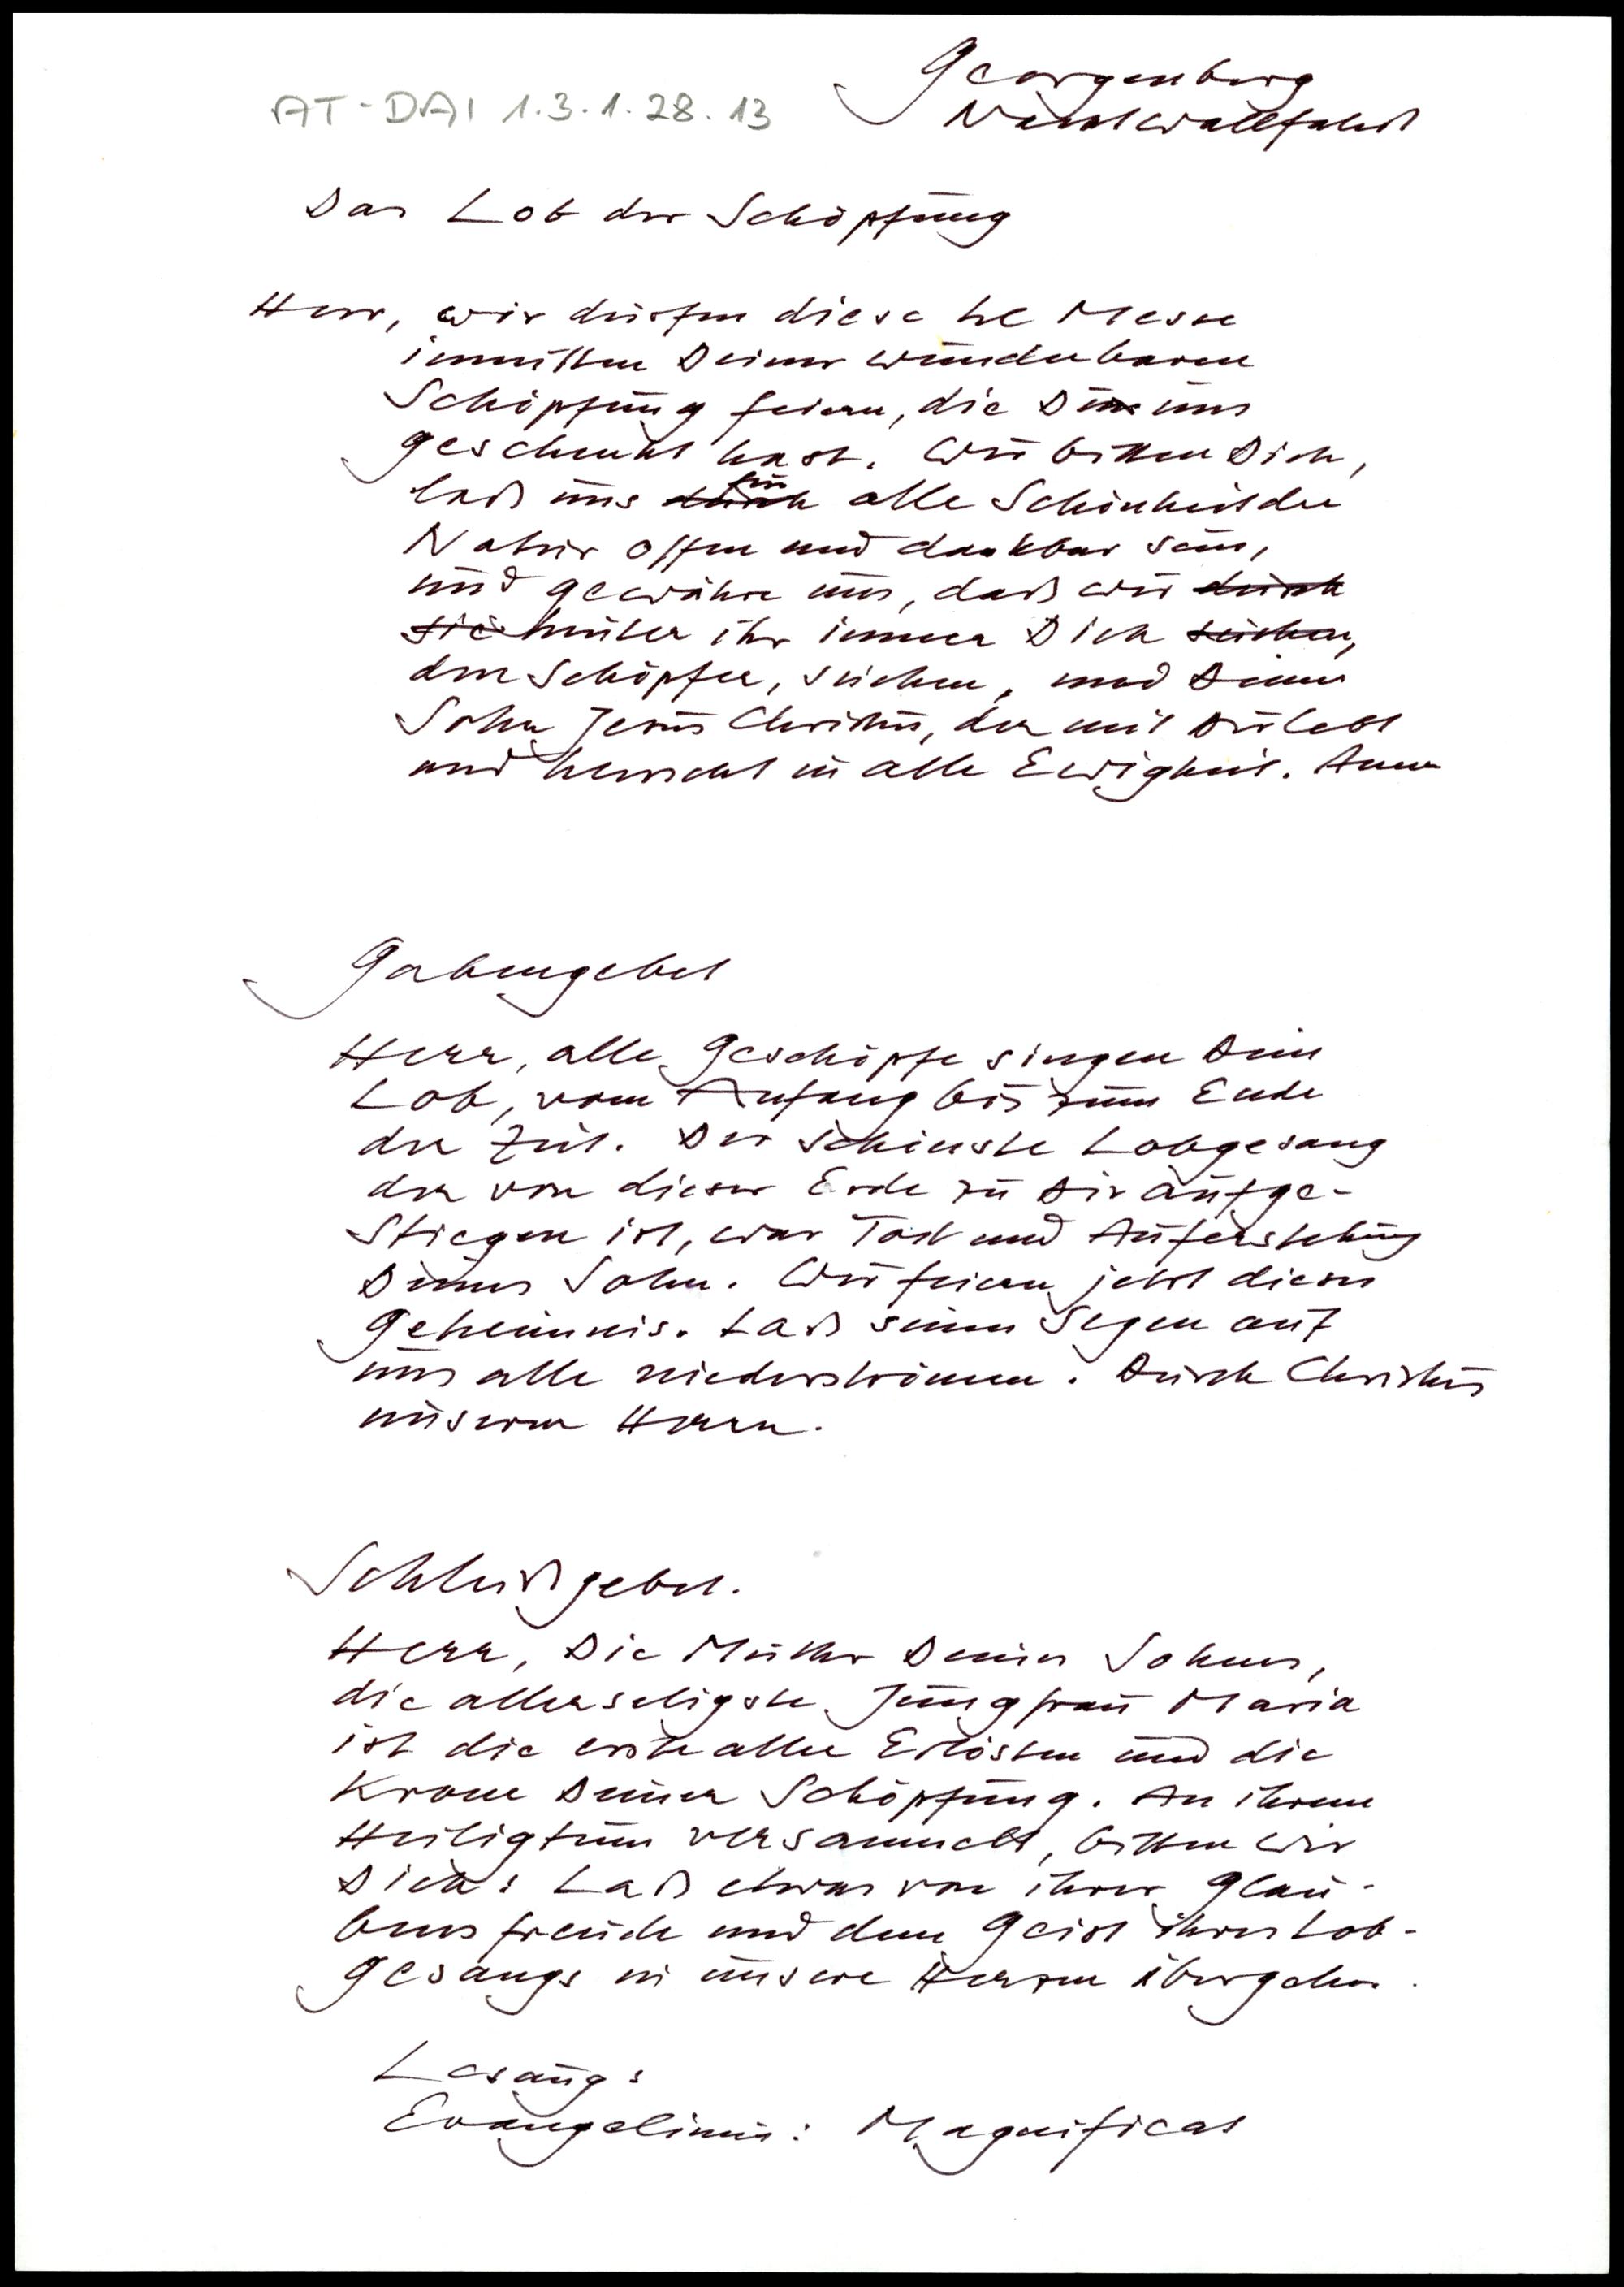 Georgenberg
AT-DAI 1.3.1.28.13
Nachtwallfahrt
Das Lob der Schöpfung
Herr, wir dürfen diese hl Messe
inmitten Deiner wunderbaren
Schöpfung feiern, die Du uns
geschenkt hast. Wir bitten Dich,
laß uns durch für alle Schönheit der
Natur offen und dankbar sein,
und gewähre uns, daß wir durch
sie hinter ihr immer Dich suchen,
den Schöpfer, suchen, und Deinen
Sohn Jesus Christus, der mit Dir lebt
und herrscht in alle Ewigkeit. Amen
Gabengebet
Herr, alle Geschöpfe singen Dein
Lob, vom Anfang bis zum Ende
der Zeit. Der schönste Lobgesang
der von dieser Erde zu Dir aufge-
stiegen ist, war Tod und Auferstehung
Deines Sohns. Wir feiern jetzt dieses
Geheimnis. Laß seinen Segen auf
uns alle niederströmen. Durch Christus
unseren Herrn.
Schlußgebet.
Herr, Die Mutter Deines Sohnes,
die allerseligste Jungfrau Maria
ist die erste aller Erlösten und die
Krone Deiner Schöpfung. An ihrem
Heiligtum versammelt, bitten wir
Dich: Laß etwas von ihrer Glau-
bensfreude und dem Geist ihres Lob-
gesangs in unsere Herzen übergehen.
Lesung:
Evangelium: Magnificat